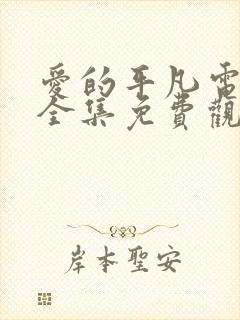 愛的平凡電
全集免費觀
岸本聖安